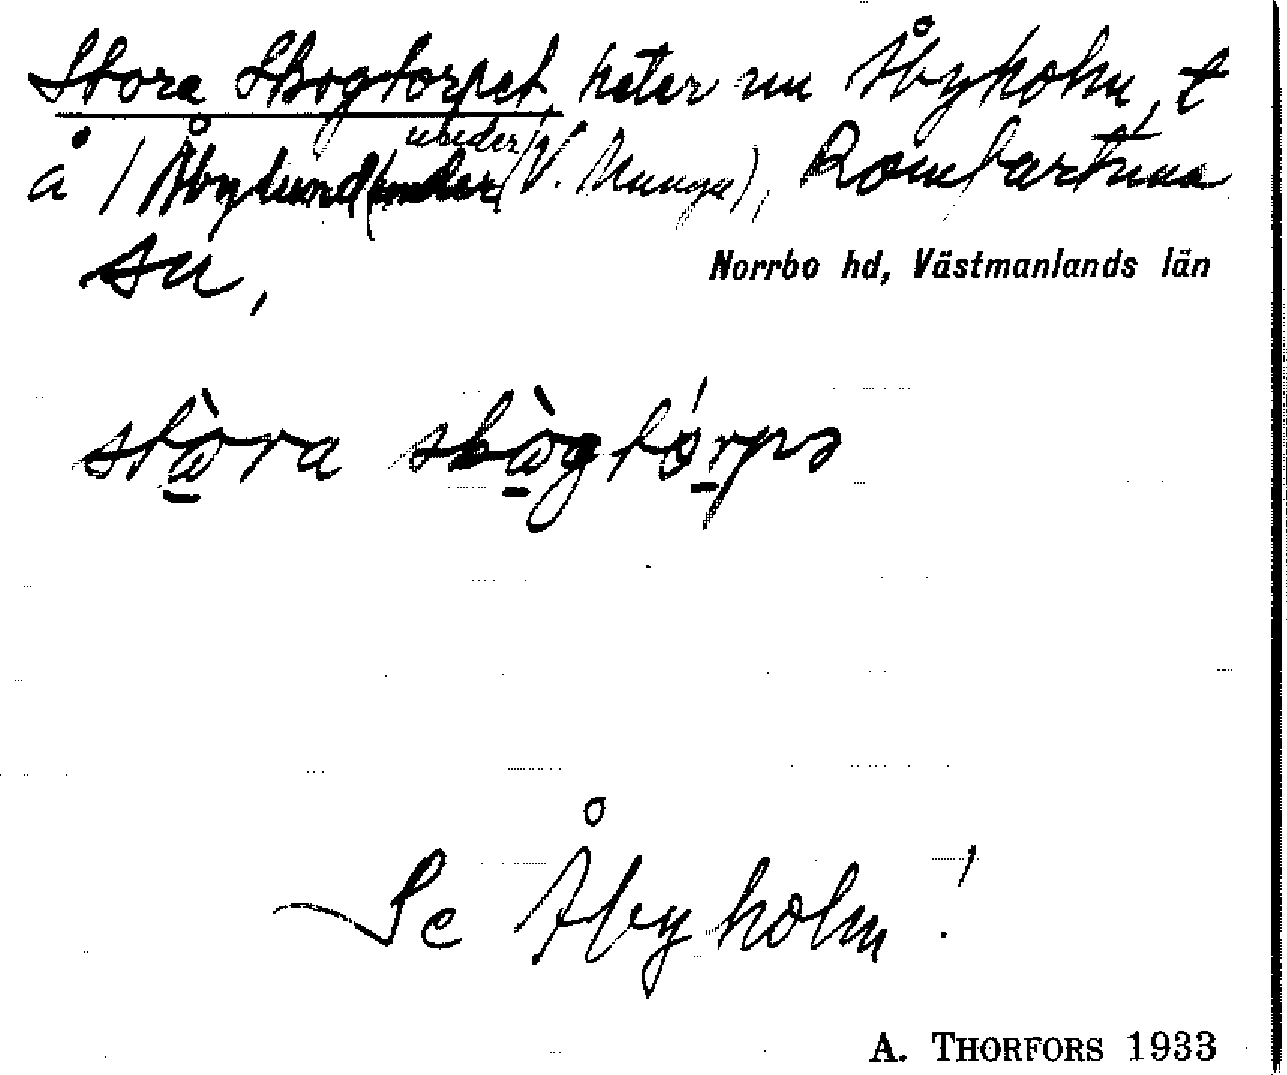 Stora Skogtorpet, heter nu Åbyholm, t
å / Åbylund (under (V. Munga), Romfartuna
sn,
Norrbo hd, Västmanlands län
stòra skògtórpə
Se Åbyholm!
A. THORFORS 1933